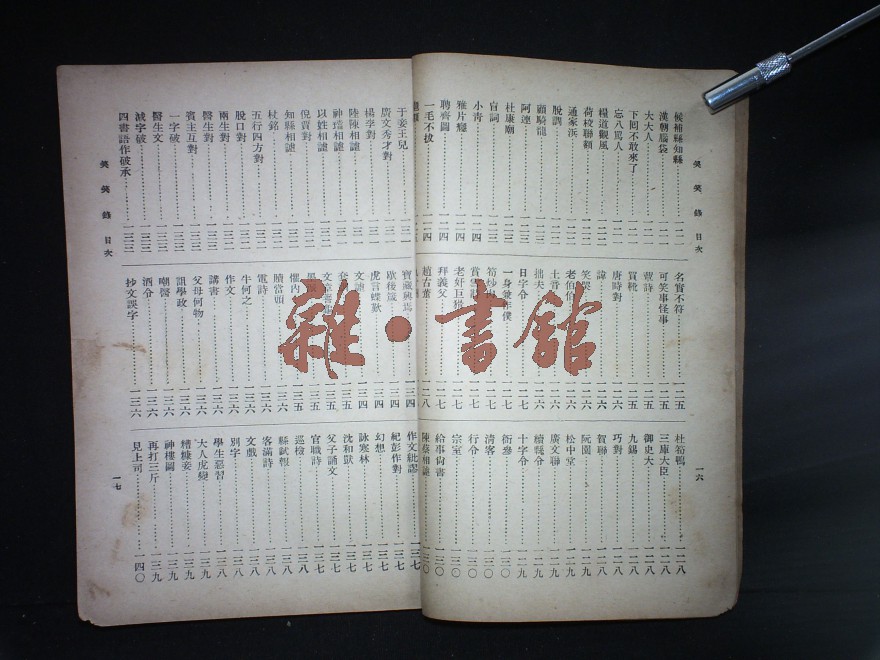 笑笑錄 目次
一六
候補縣知縣…一二一
漢朝腦袋…一二一
大大人…一二一
下回不敢來了…一二二
忘八罵人…一二二
糧道觀風…一二二
荷校聯額…一二二
通家浜…一二二
脫調…一二三
顧騎龍…一二三
阿連…一二三
杜康廟…一二三
盲詞…一二三
小青…一二四
雅片癮…一二四
聘齊圖…一二四
一毛不拔…一二四
名實不符…一二五
可笑事怪事…一二五
買靴…一二五
唐時對…一二五
諱…一二六
笑哭…一二六
老伯伯…一二六
拙夫…一二六
日字令…一二七
一身兼主僕…一二七
拜義父…一二七
趙古董…一二八
杜荀鴨…一二八
三庫大臣…一二八
御史大…一二八
九錫…一二八
巧對…一二八
賀聯…一二八
阮園…一二九
松中堂…一二九
廣文聯…一二九
續縣令…一二九
十字令…一二九
銜參…一三〇
清客…一三〇
行令…一三〇
宗室…一三〇
給事尙書…一三〇
陳蔡相謔…一三〇
笑笑錄 目次
一七
于妾王兒
廣文秀才對
楊李對
陸陳相謔
神璫相謔
以姓相謔
倪賈對
知縣相謔
杖銘
五行四方對
脫口對
兩生對
醫生對
賓主互對
一字破
醫生文
減字破
四書語作破承…一三三
寶藏興焉…一三四
歇後箴…一三四
虎言蝶歎…一三四
懼內…一三五
賸當頭…一三六
電詩…一三六
牛何之…一三六
作文…一三六
講書…一三六
父母何物…一三六
詛學政…一三六
嘲醫…一三六
酒令…一三六
抄文誤字…一三六
作文紕謬…一三七
紀彭作對…一三七
幻想…一三七
詠寒林…一三七
沈和獃…一三七
父子誦文…一三七
官職詩…一三七
巡檢…一三八
縣試報…一三八
客滿詩…一三八
文戲…一三八
別字…一三八
學生惡習…一三九
大人虎變…一三九
糟糠妾…一三九
神樓圖…一三九
再打三斤…一三九
見上司…一四〇
雜·書舘